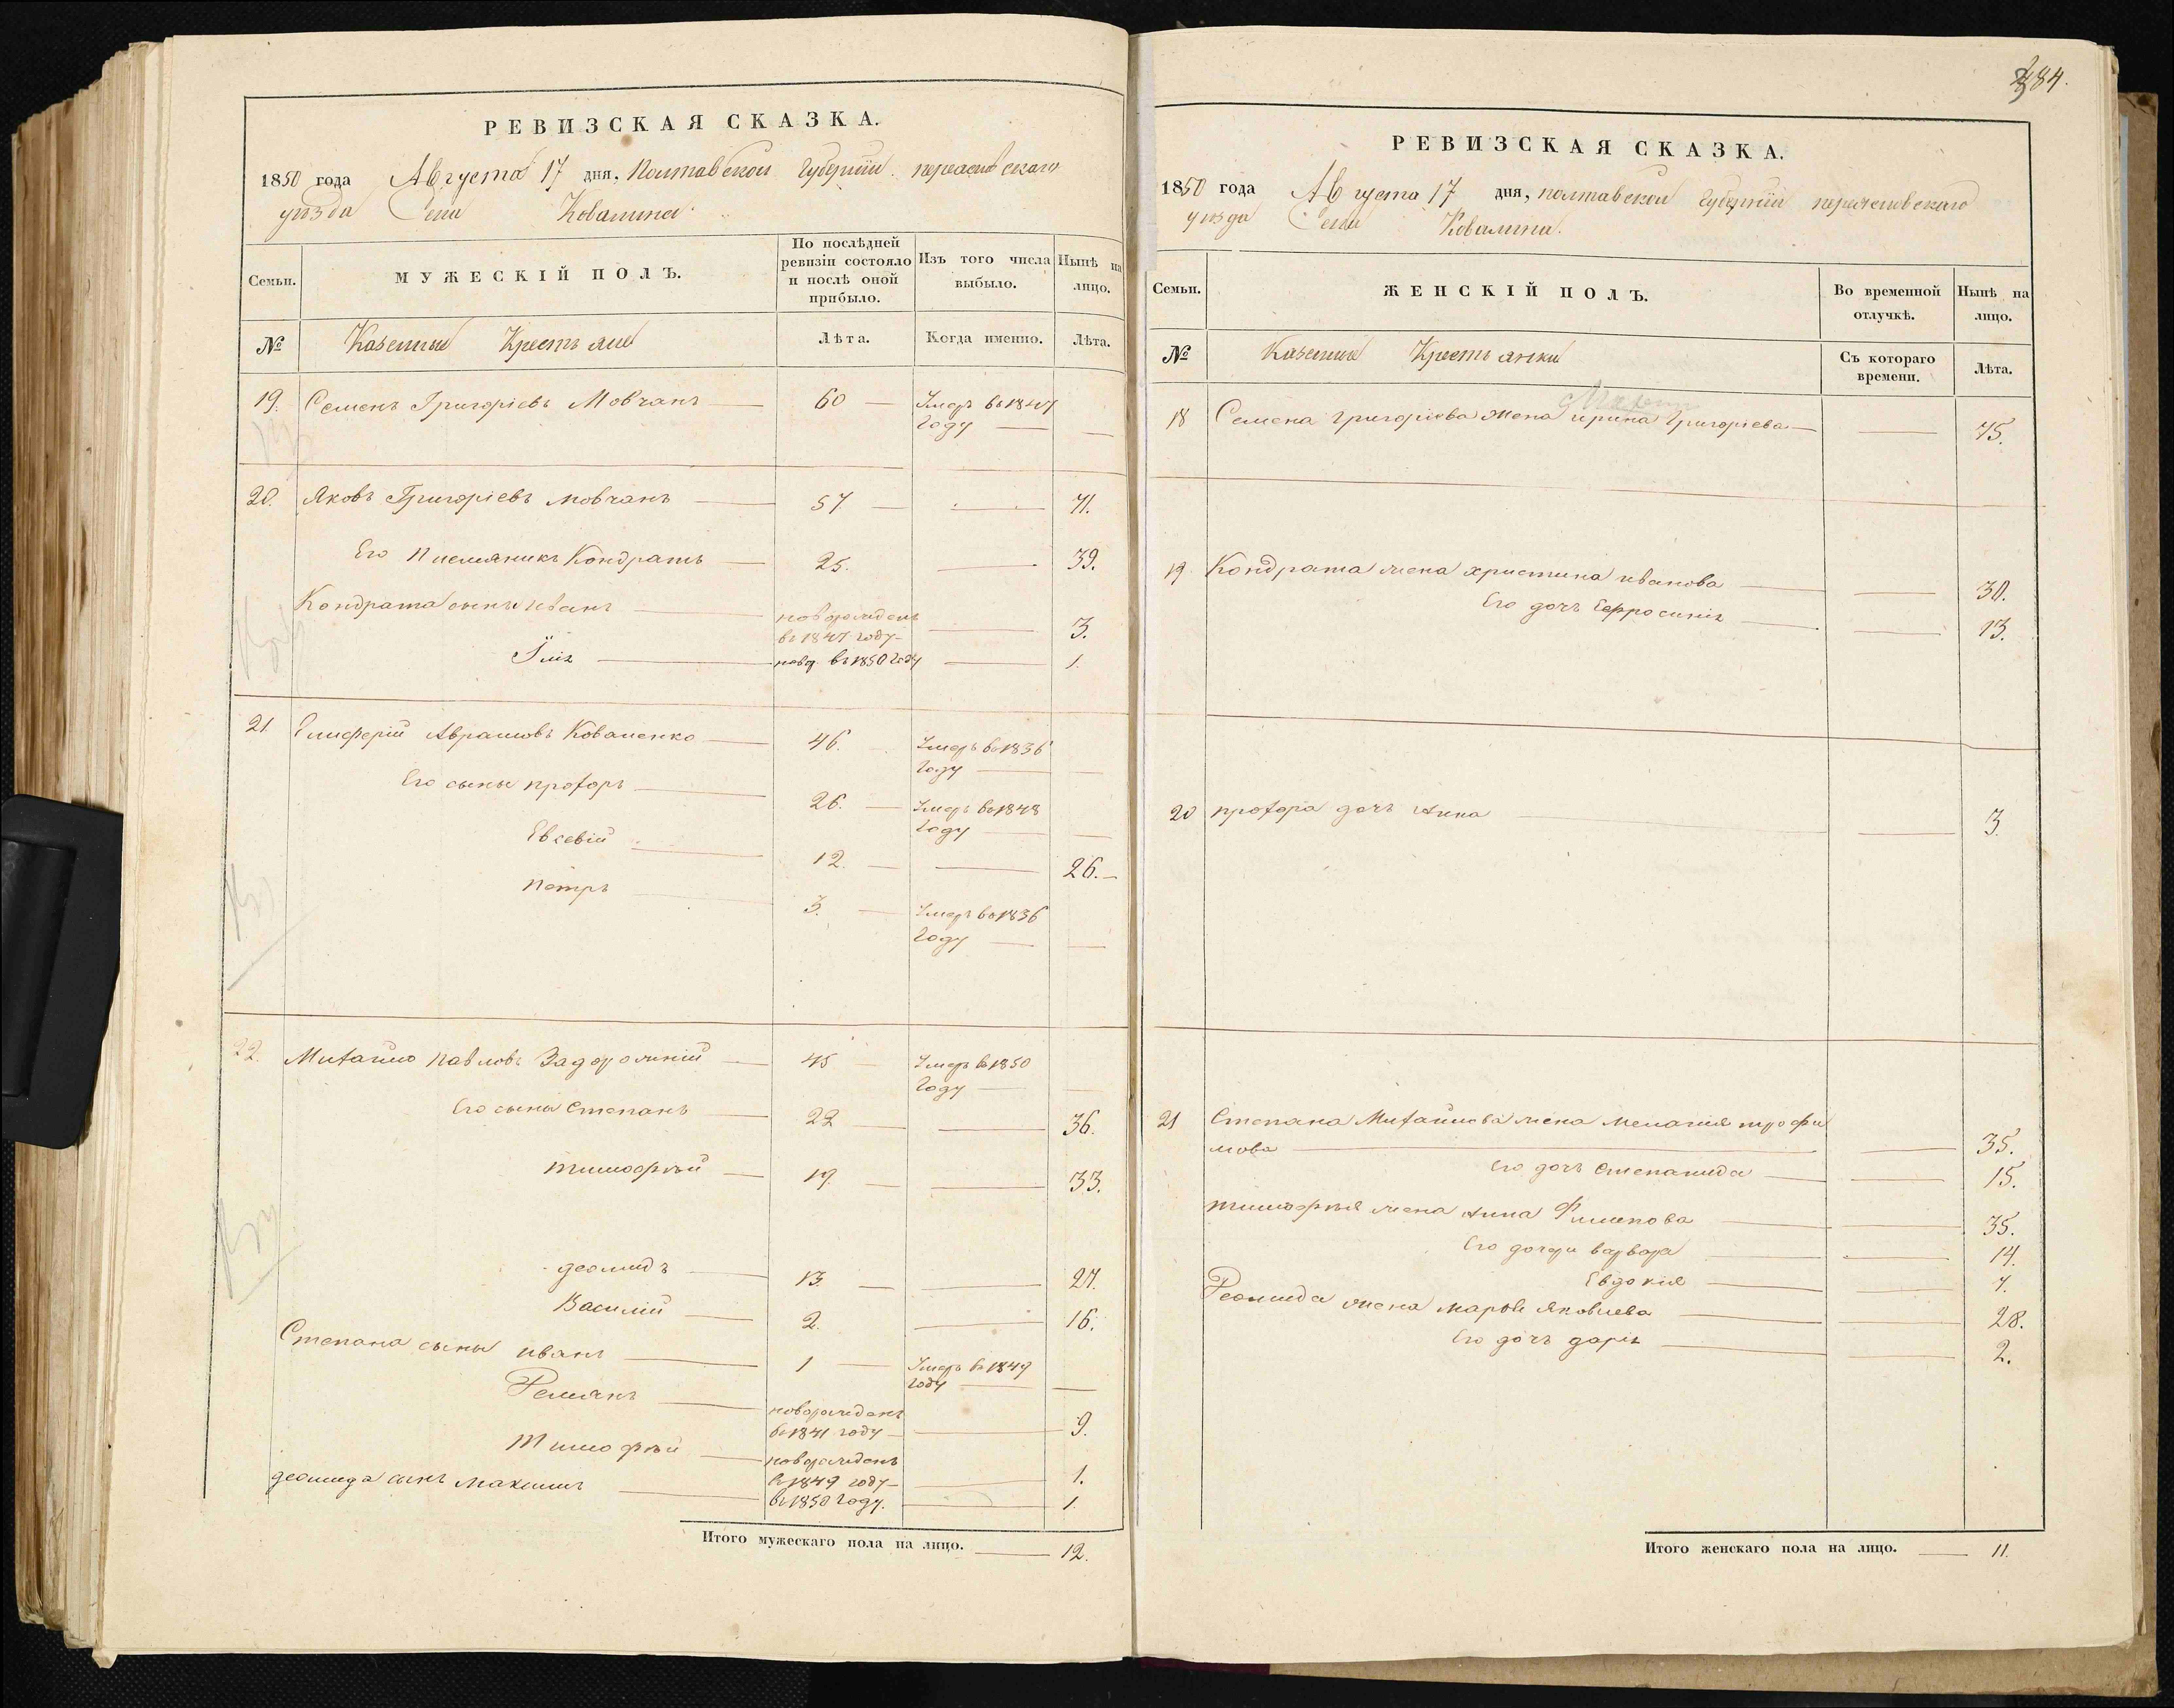 РЕВИЗСКАЯ СКАЗКА.
1850 года Августа 17 дня, Полтавской Губерніи переяславскаго
уѣзда Села Ковалина.
Семьи.
МУЖЕСКІЙ ПОЛЪ.
По послѣдней ревизіи состояло и послѣ оной прибыло.
Изъ того числа выбыло.
Нынѣ на лицо.
№
Казенные Крестьяне
Лѣта.
Когда именно.
Лѣта.
19. Семенъ Григоріевъ Мовчанъ 60 Умеръ въ 1847
году
20. Яковъ Григоріевъ мовчанъ 57 71.
Его Племяникъ Кондратъ 25. 39.
Кондрата сынъ Иванъ новорожденъ
въ 1847 году 3.
Илія новор. въ 1850 году 1.
21 Елиферій Аврамовъ Коваленко 46. Умеръ въ 1836
году
Его сыны прохоръ 26. Умеръ въ 1848
году
Евсевій 12. 26.
петръ 3. Умеръ въ 1836
году
22. Михайло павловъ Задорожній 45 Умеръ въ 1850
году
Его сыны Степанъ 22 36.
тимофѣй 19. 33.
деомидъ 13. 27.
Василій 2. 16.
Степана сыны иванъ 1 Умеръ въ 1849
году
Демянъ новорожденъ
въ 1841 году 9.
Тимофѣй новорожденъ
въ 1849 году 1.
деомида сынъ максимъ въ 1850 году. 1.
Итого мужескаго пола на лицо. 12.
384.
РЕВИЗСКАЯ СКАЗКА.
1850 года Августа 17 дня, полтавской Губерніи переяславскаго
уѣзда Села Ковалина.
Семьи.
ЖЕНСКІЙ ПОЛЪ.
Во временной отлучкѣ.
Нынѣ на лицо.
№
Казенные Крестьянки
Съ котораго времени.
Лѣта.
18 Семена григоріева жена ирина Григоріева 75.
19 Кондрата жена христина иванова 30.
Его дочь Ефросинія 13.
20 прохора дочь Анна 3
21 Степана Михайлова жена мелагия трофи
мова 35.
Его дочь степанида 15.
тимофѣя жена анна Филипова 35.
Его дочери варвара 14.
Евдокия 7.
Деомида жена марфа Яковлева 28.
Его дочь дарія 2.
Итого женскаго пола на лицо. 11.